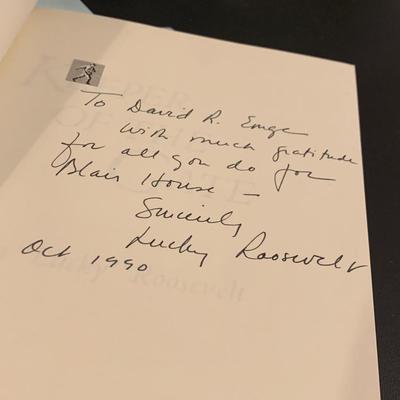 To David R. Emge
with much gratitude
for all you do for
Blair House –
Sincerely
Lucky Roosevelt
Oct 1990
KEEPER
OF THE
GATE
Lucky Roosevelt